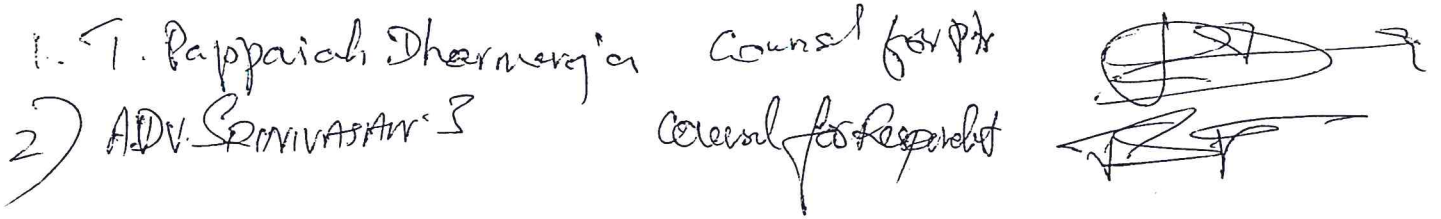 1. T. Pappaiah Dharmaraja Counsel for Ptr
2) ADV. SRINIVASAN.S Counsel for Respondent